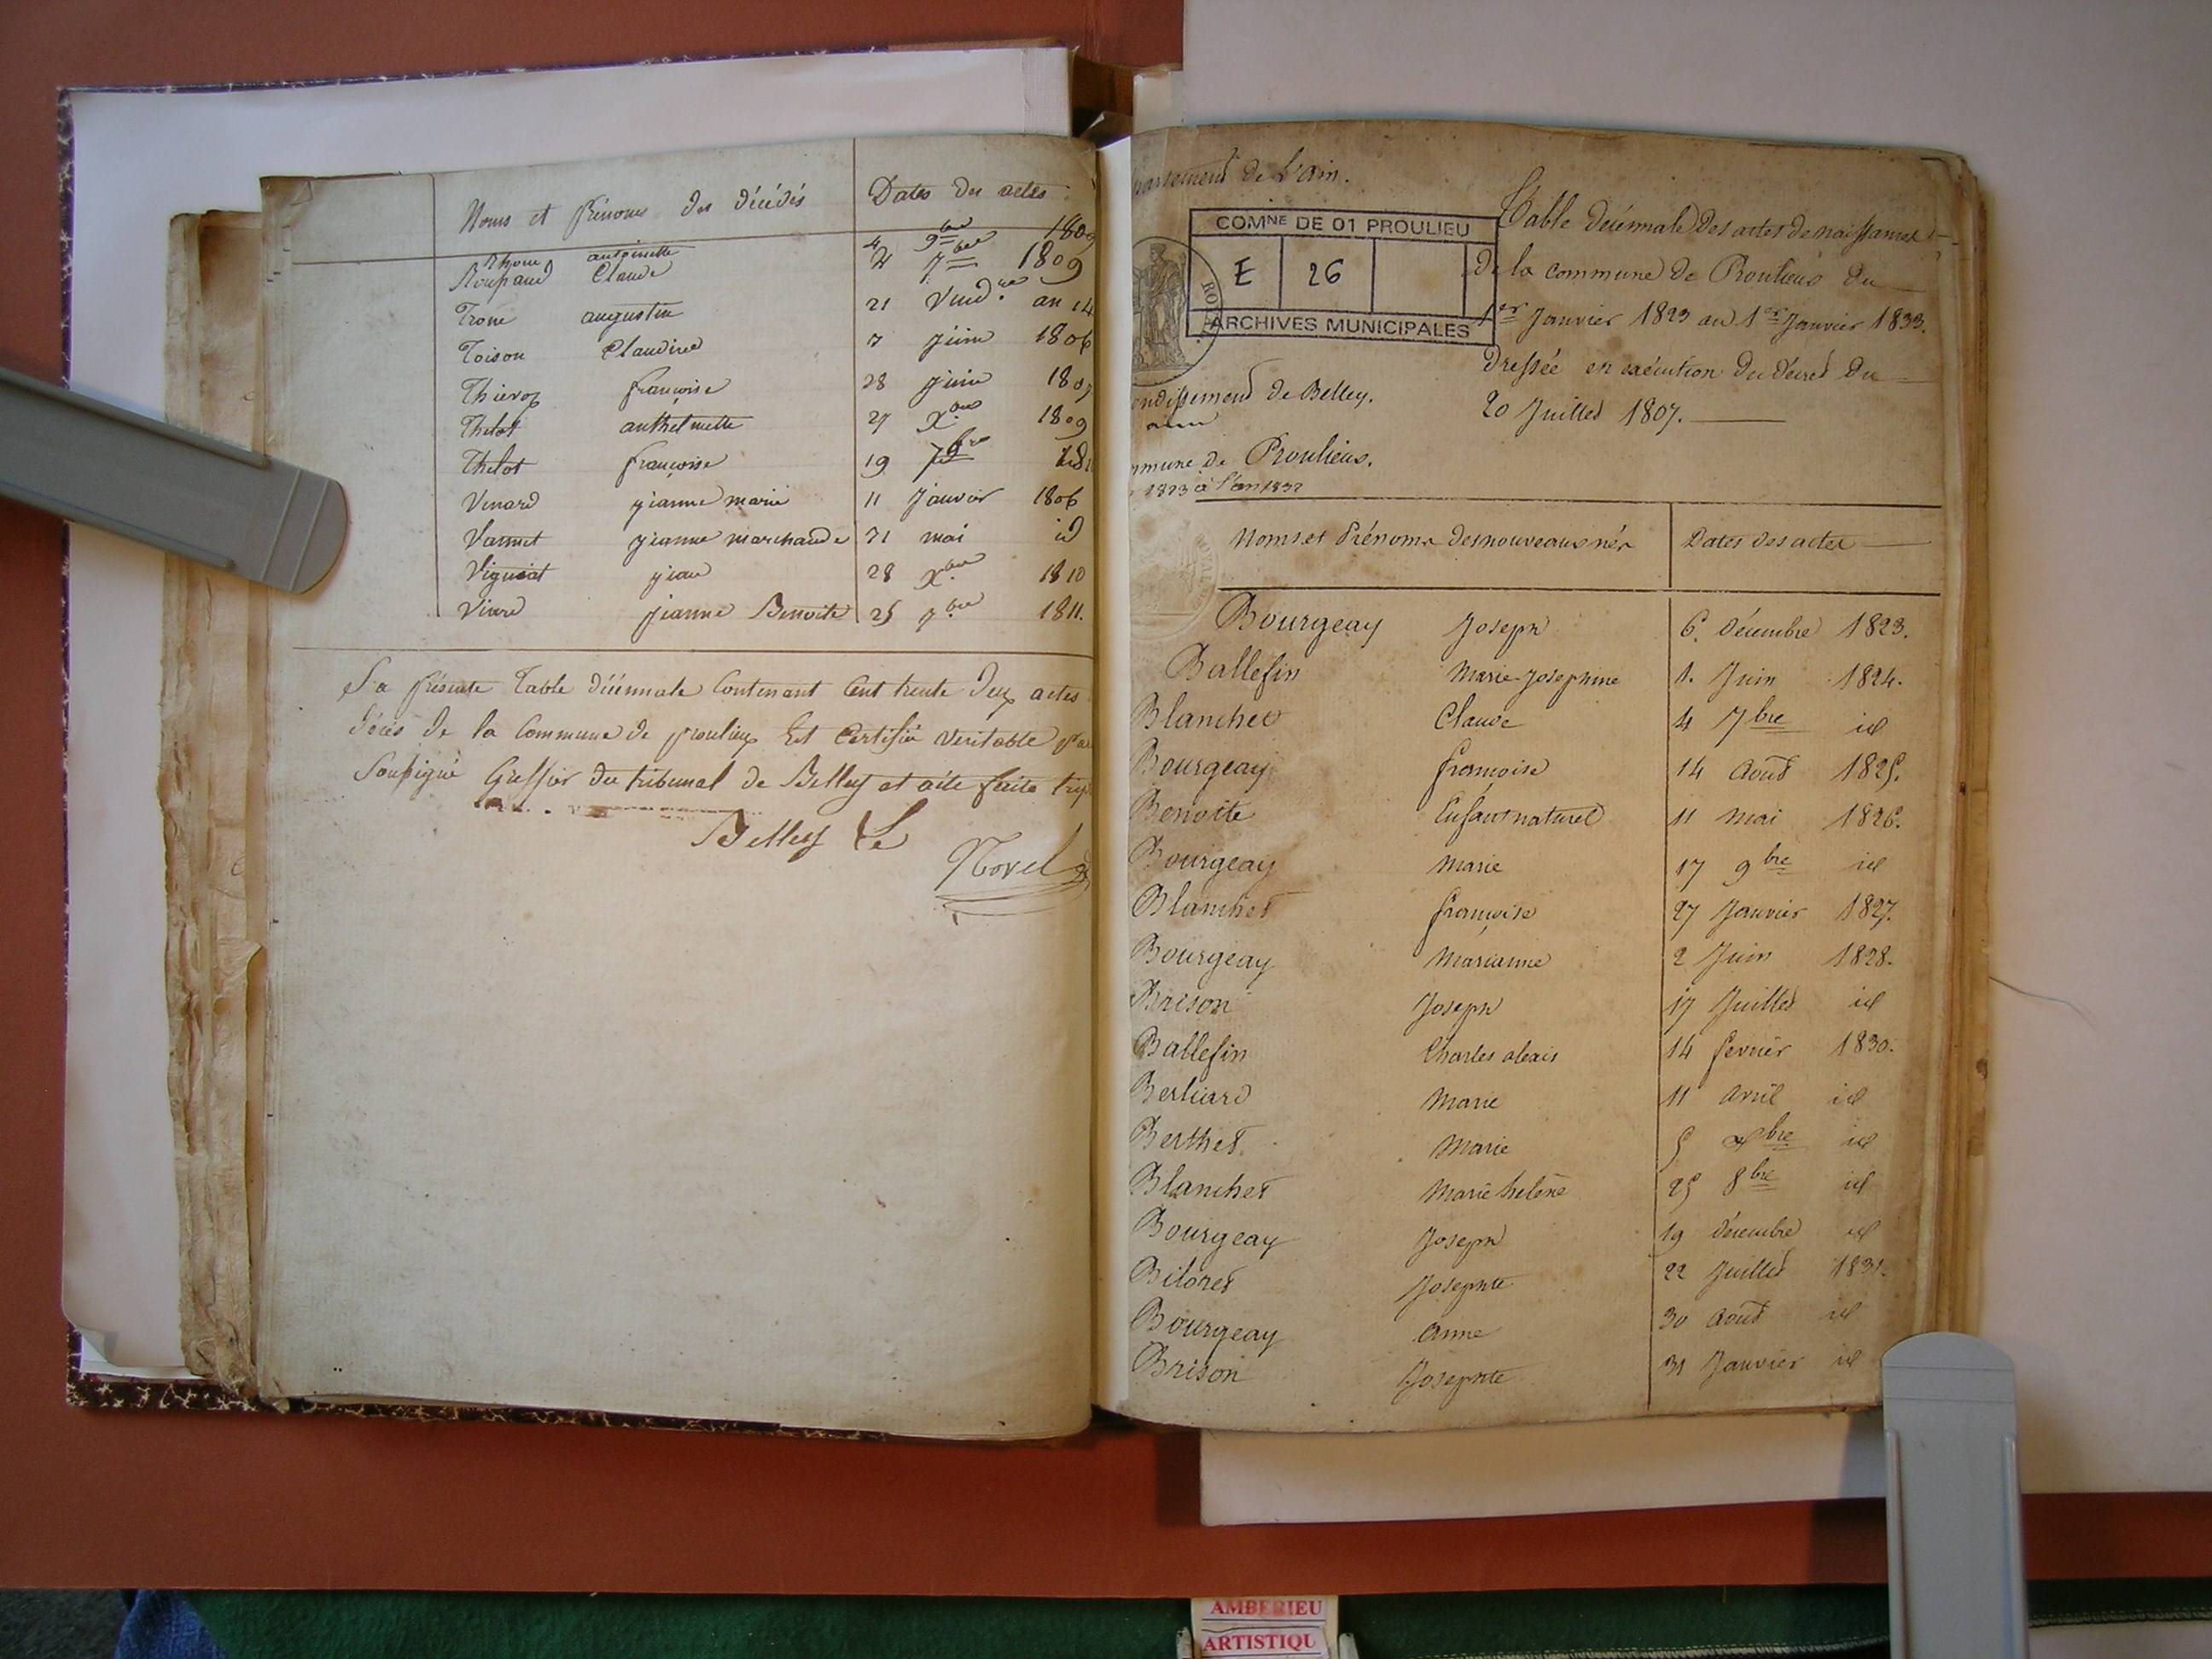 Noms et prénoms des décédés Dates des actes
Rhone antoinette 4 9bre 1809
Roupand Claude 21 7bre 1809
Trone augustin 21 Vend.re an 14
Toison Claudine 7 juin 1806
Thievoz françoise 28 juin 180
Thelot anthelmette 27 Xbre 1809
Thelot françoise 19
Vinard jeanne marie 11 Janvier 1806
Vannet jeanne marchande 31 mai id
jean 28 Xbre 1810
jeanne Benoite 25 7bre 1811.
La présente Table décennale Contenant Cent trente deux actes
décès de la Commune de proulieu Est Certifié véritable
Soussigné Greffier du tribunal de Belley et a été faite
Belley Le
Novel
partement de l'ain.
COMNE DE 01 PROULIEU
E 26
ARCHIVES MUNICIPALES
Table décennale des actes de naissances
De la commune de Proulieu du
1er Janvier 1823 au 1er Janvier 1833.
dressée en exécution du décret du
20 Juillet 1807.
ondissement de Belley.
mmune de Proulieu.
1823 à l'an 1832
Noms et Prénoms des nouveaux nés Dates des actes
Bourgeay Joseph 6. décembre 1823.
Ballefin Marie Josephine 1. Juin 1824.
Blanchet Claude 4 7bre id
Bourgeay françoise 14 Août 1825.
Benoite Enfant naturel 11 mai 1826.
Bourgeay Marie 17 9bre id
Blanchet françoise 27 Janvier 1827.
Bourgeay Marianne 2 Juin 1828.
Brison Joseph 17 Juillet id
Ballefin Charles alexis 14 fevrier 1830.
Berliard Marie 11 avril id
Berthet Marie 5 Xbre id
Blanchet Marie helene 25 8bre id
Bourgeay Joseph 19 décembre id
Biloret Josephte 22 Juillet 1831.
Bourgeay anne 30 août id
Brison Josephte 31 Janvier id
AMBERIEU
ARTISTIQU